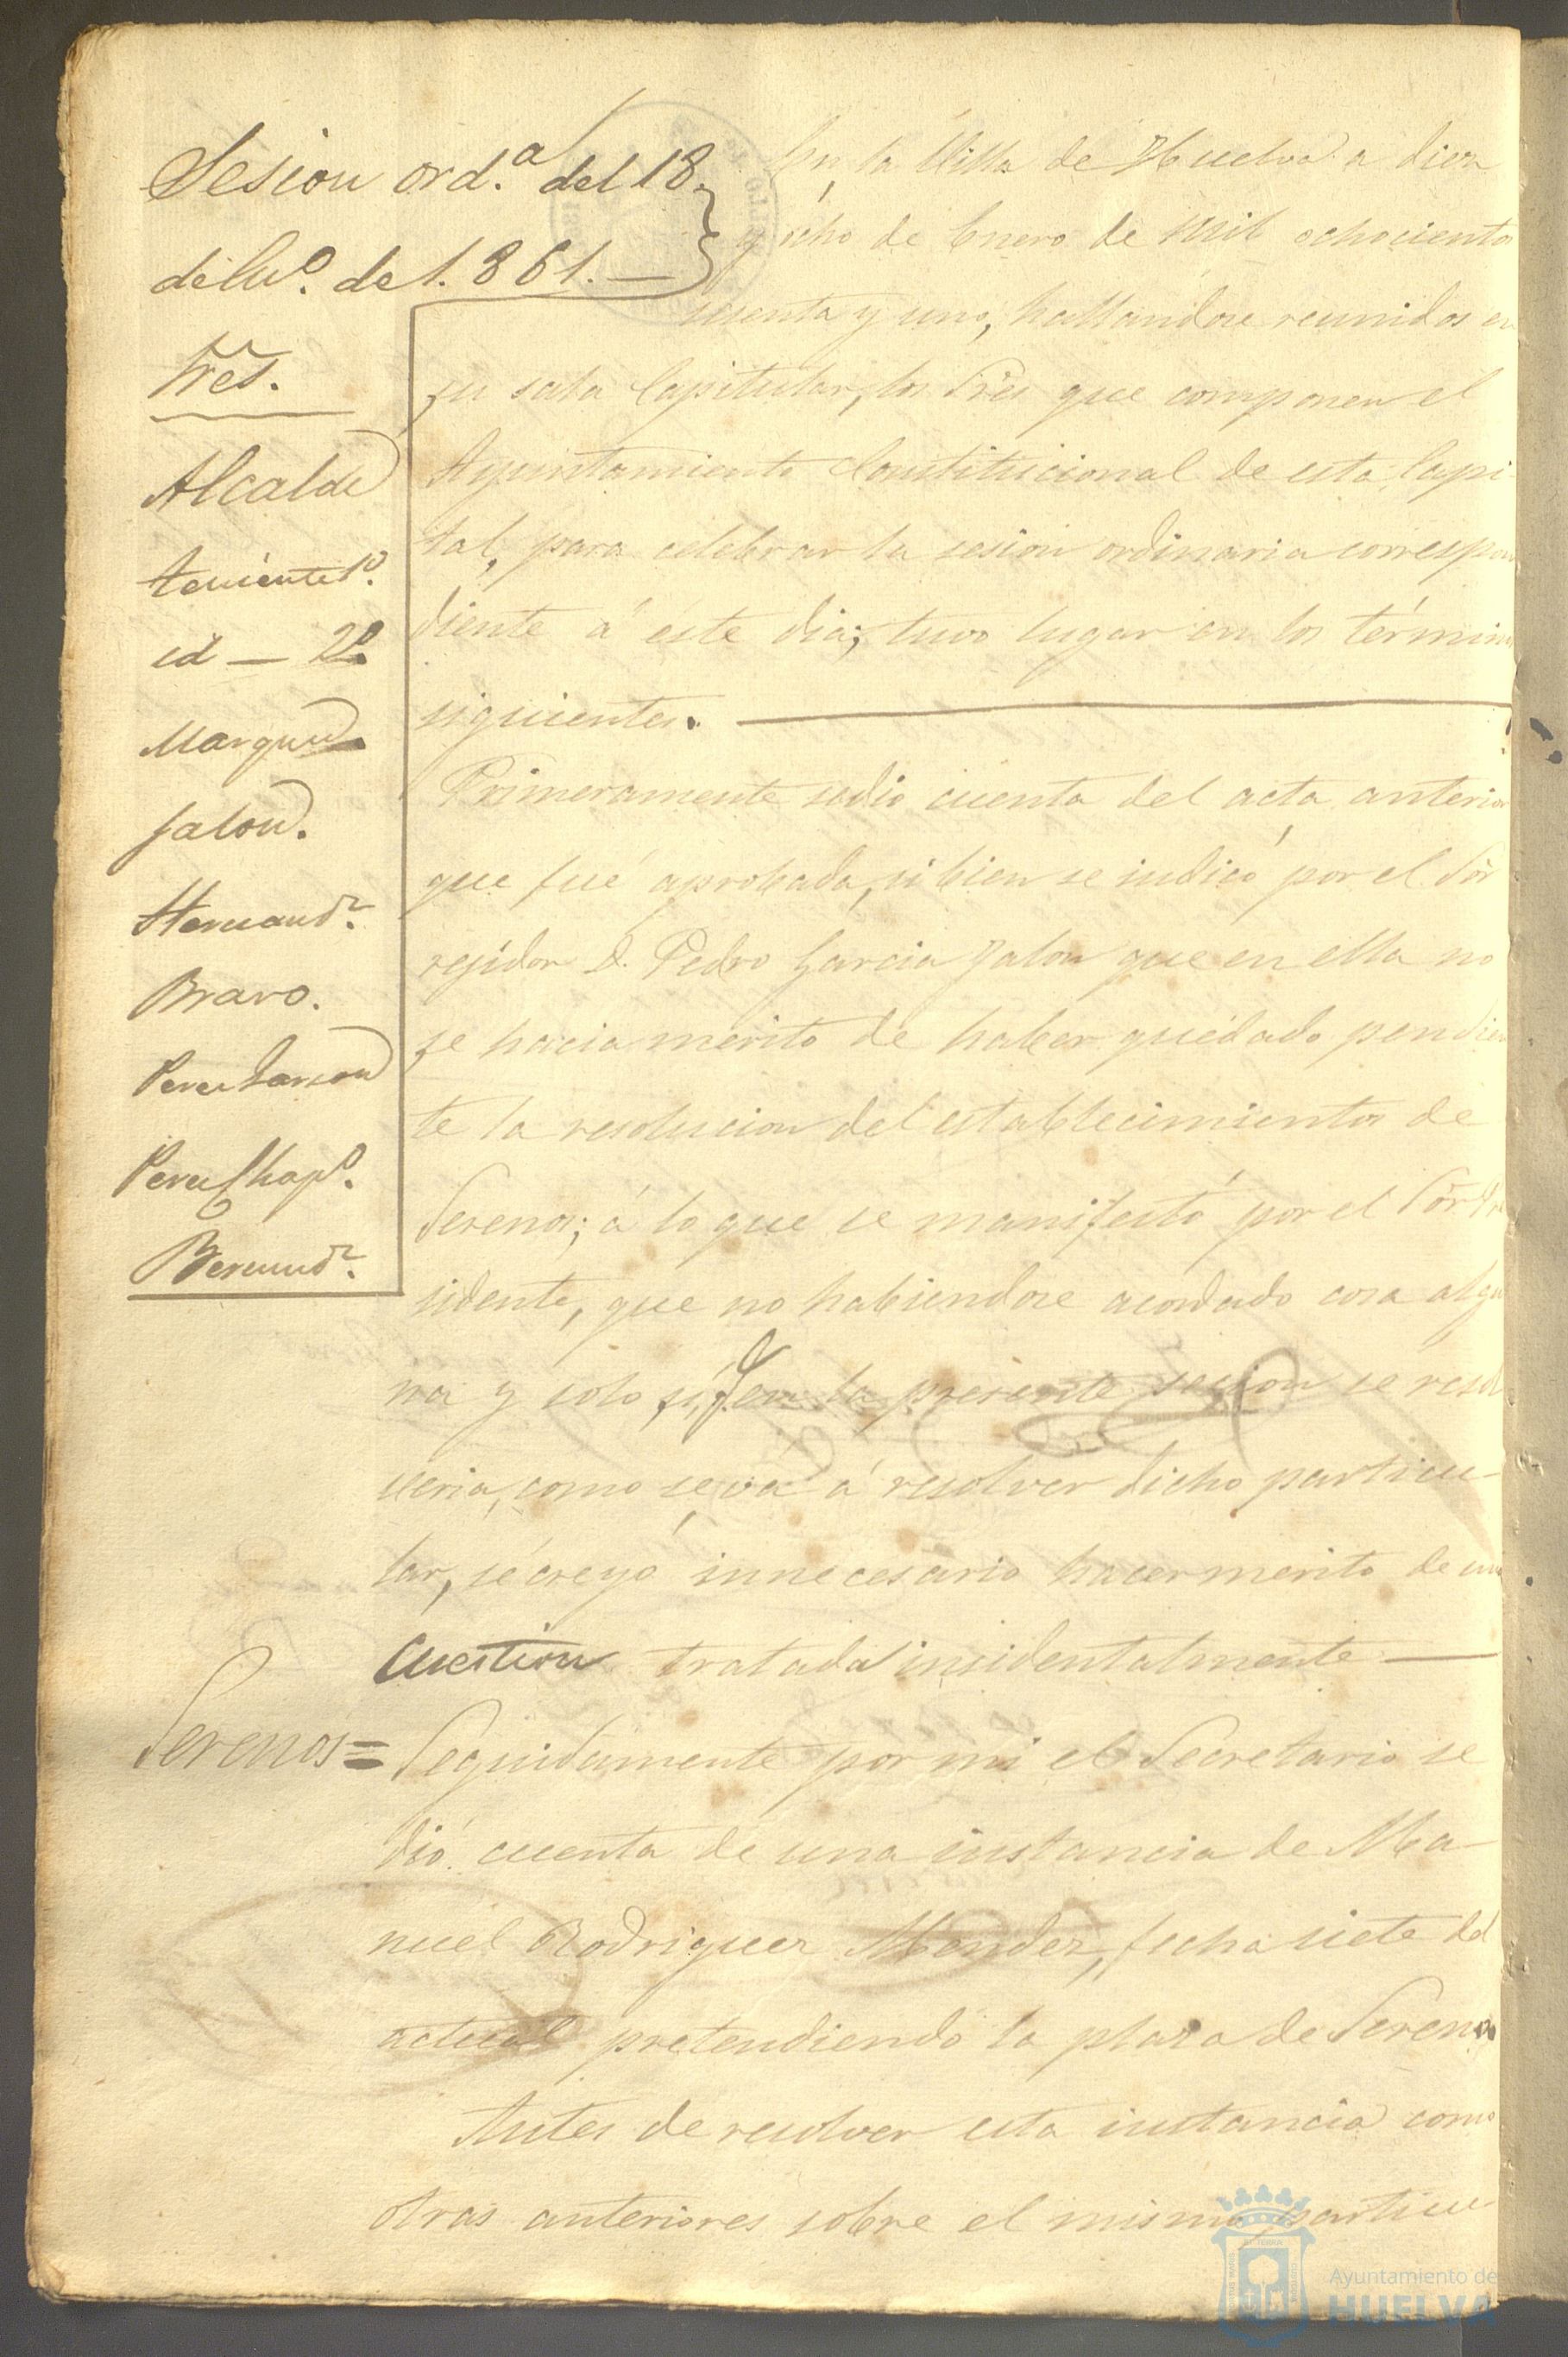 Sesion ord.ª del 18
de En.º de 1.861.—
Sres.
Alcalde
teniente 1º.
id — 2º.
Marquez
Jalon.
Hernand.z
Bravo.
Perez Garzon
Perez Chap.º
Bermud.z
En la Villa de Huelva a diez
y ocho de Enero de mil ochociento
sesenta y uno, hallandose reunidos en
su sala Capitular, los Sres que componen el
Ayuntamiento Constitucional de esta Capi-
tal, para celebrar la sesion ordinaria correspon
diente á este dia; tuvo lugar en los términ
siguientes. —
Primeramente se dio cuenta del acta anterior
que fué aprobada, si bien se indicó por el Sõr
regidor D. Pedro Garcia Jalon que en ella no
se hacia merito de haber quedado pendien
te la resolucion del establecimientos de
Serenos; á lo que se manifestó por el Sõr Pre
sidente, que no habiendose acordado cosa algu
na y solo si, q. en la presente sesion se resol
veria, como se vá á resolver dicho particu-
lar, se creyó innecesario hacer merito de una
Cuestion tratada insidentalmente —
Serenos = Seguidamente por mi el Secretario se
dió cuenta de una instancia de Ma-
nuel Rodriguez Mendez, fecha siete del
actual pretendiendo la plaza de Sereno
Antes de resolver esta instancia como
otras anteriores sobre el mismo particu-
Ayuntamiento de
HUELVA